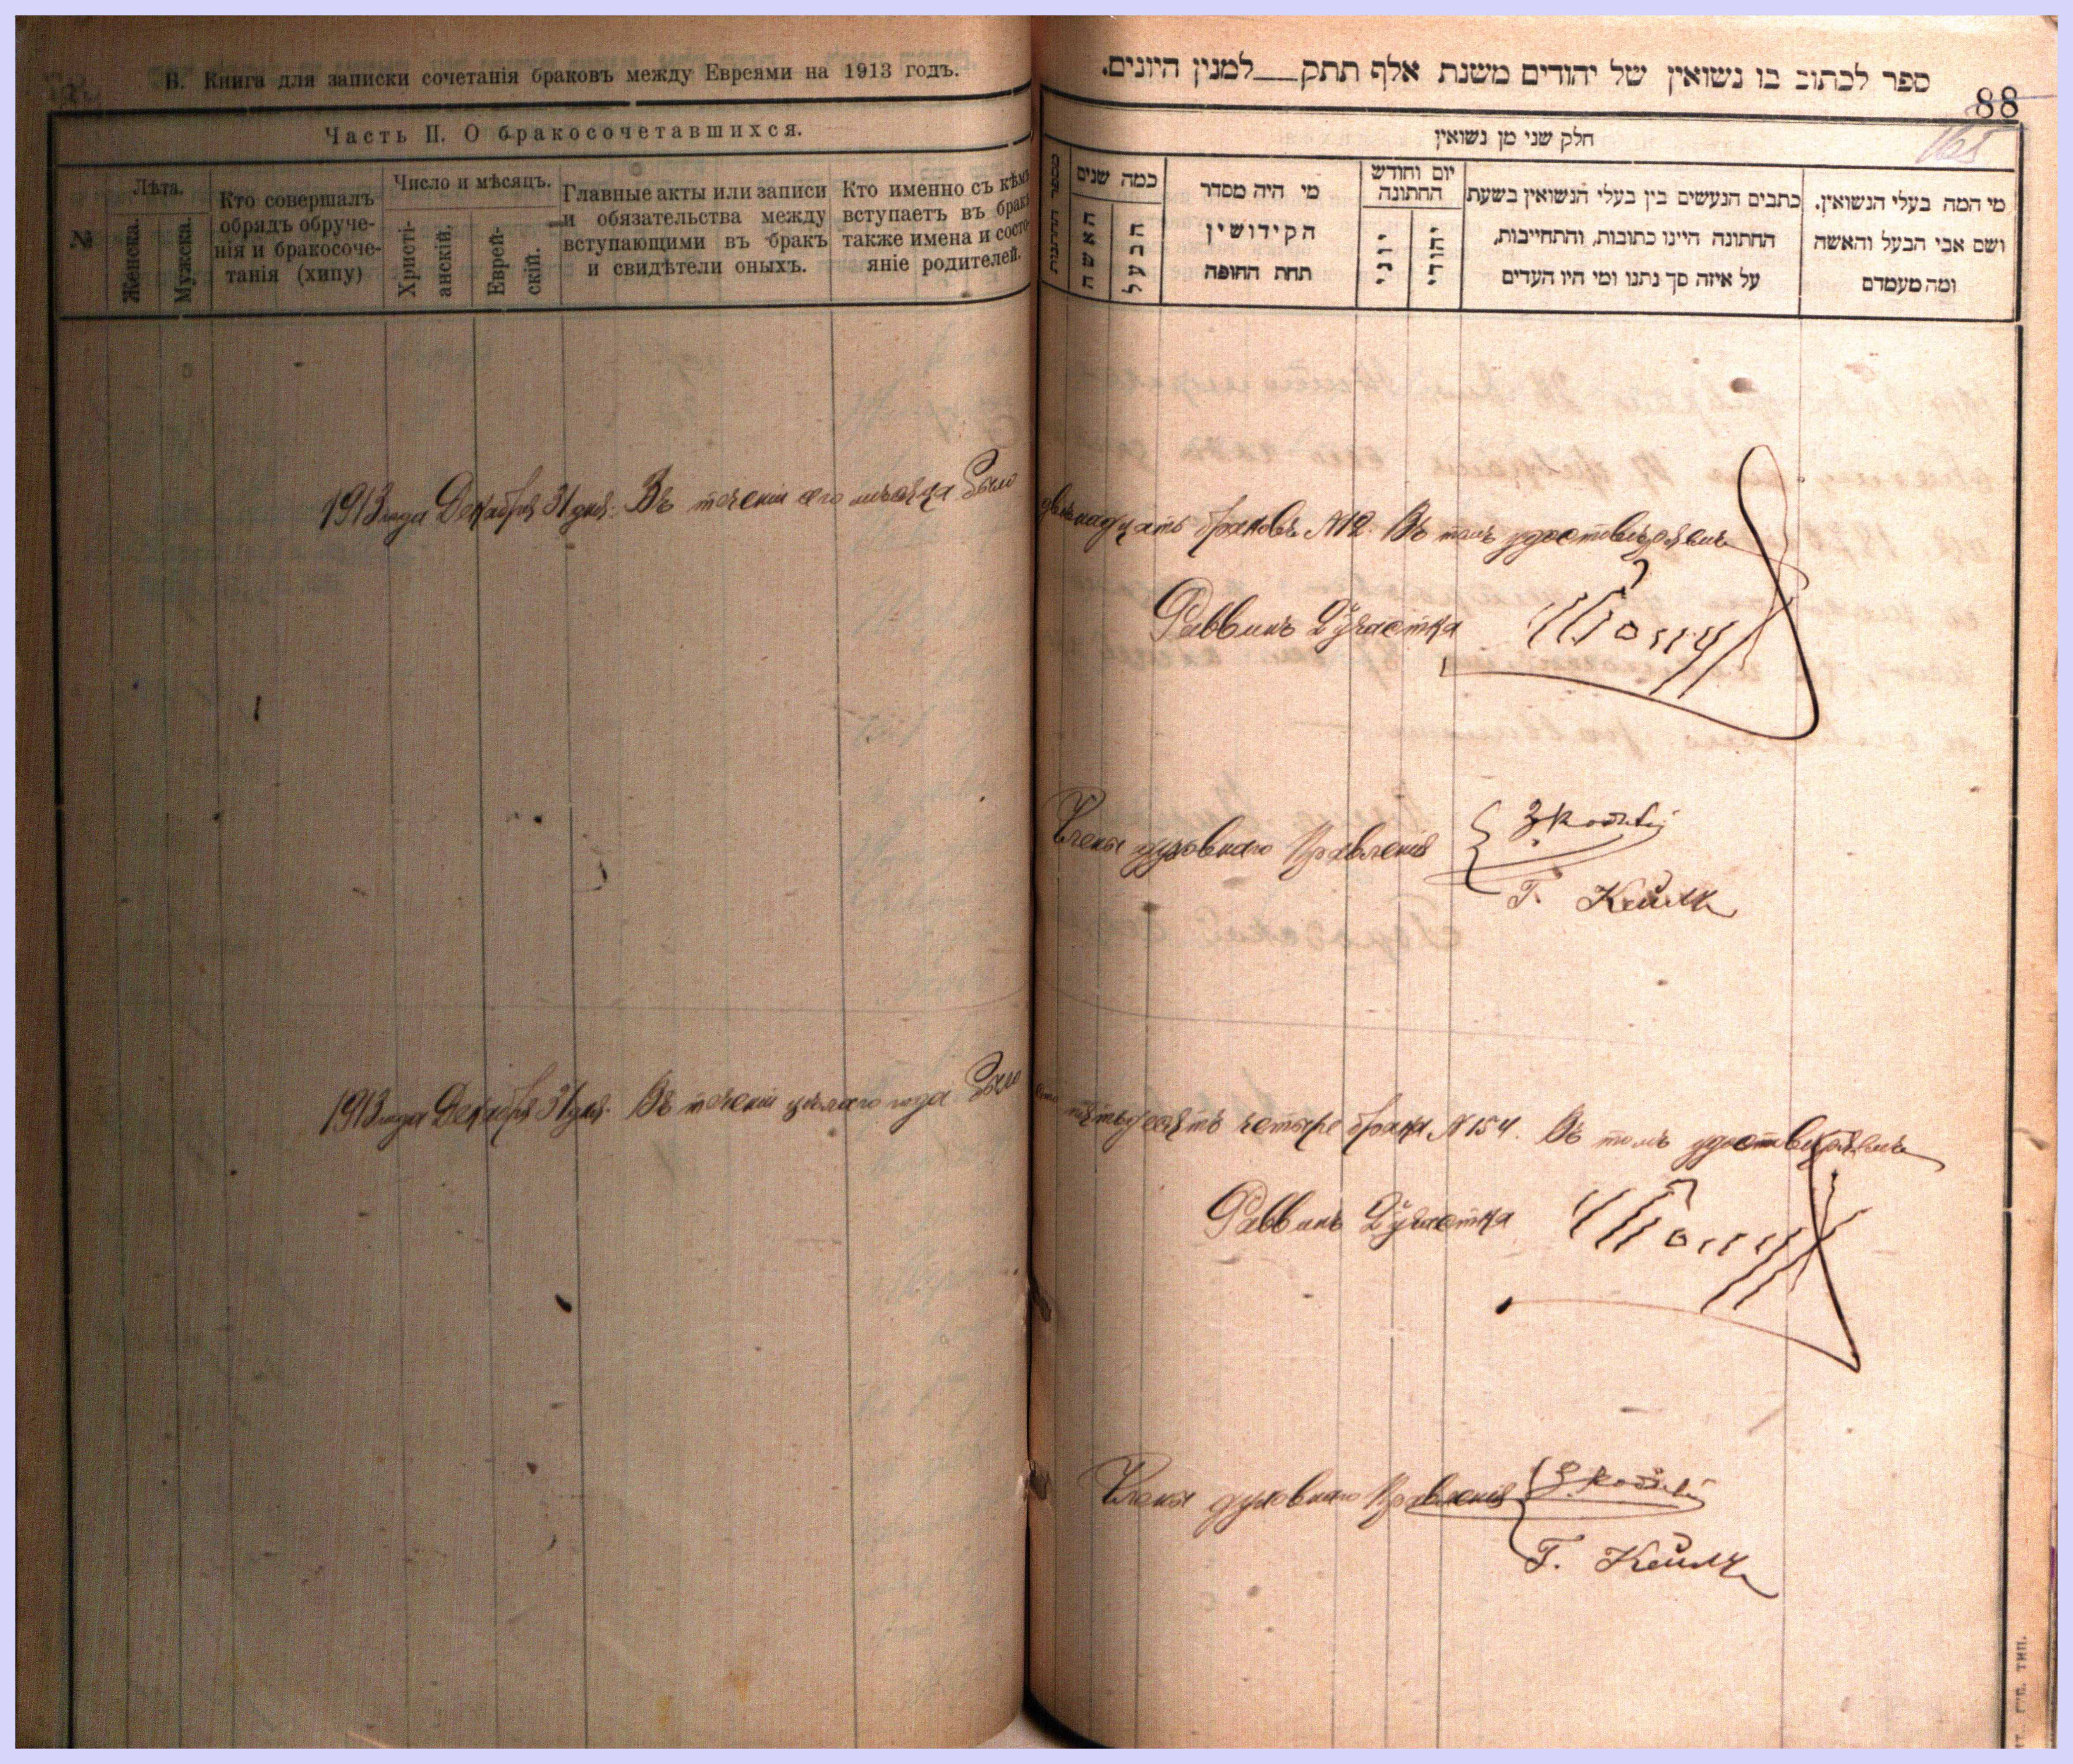 В. Книга для записки сочетанія браковъ между Евреями на 1913 годъ.
Часть II. О бракосочетавшихся.
№
Лѣта.
Женска.
Мужска.
Кто совершалъ
обрядъ обруче-
нія и бракосоче-
танія (хипу)
Число и мѣсяцъ.
Христі-
анскій.
Еврей-
скій.
Главные акты или записи
и обязательства между
вступающими въ бракъ
и свидѣтели оныхъ.
Кто именно съ кѣмъ
вступаетъ въ бракъ
также имена и состо-
яніе родителей.
1913 года Декабря 31 дня. Въ теченіи сего мѣсяца было
1913 года Декабря 31 дня. Въ теченіи цѣлаго года было
ספר לכתוב בו נשואין של יהודים משנת אלף תתק למנין היונים.
88
165
חלק שני מן נשואין
מספר החתונות
כמה שנים
האשה
הבעל
מי היה מסדר
הקידושין
תחת החופה
יום וחודש
החתונה
יוני
יהודי
כתבים הנעשים בין בעלי הנשואין בשעת
החתונה היינו כתובות, והתחייבות,
על איזה סך נתנו ומי היו העדים
מי המה בעלי הנשואין.
ושם אבי הבעל והאשה
ומה מעמדם
двѣнадцать браковъ №12. Въ томъ удостовѣряемъ
Раввинъ 2 участка
Члены духовнаго Правленія
Г. Кейлк
сто пятьдесятъ четыре брака №154. Въ томъ удостовѣряемъ
Раввинъ 2 участка
Члены духовнаго Правленія
Г. Кейлк
губ. тип.